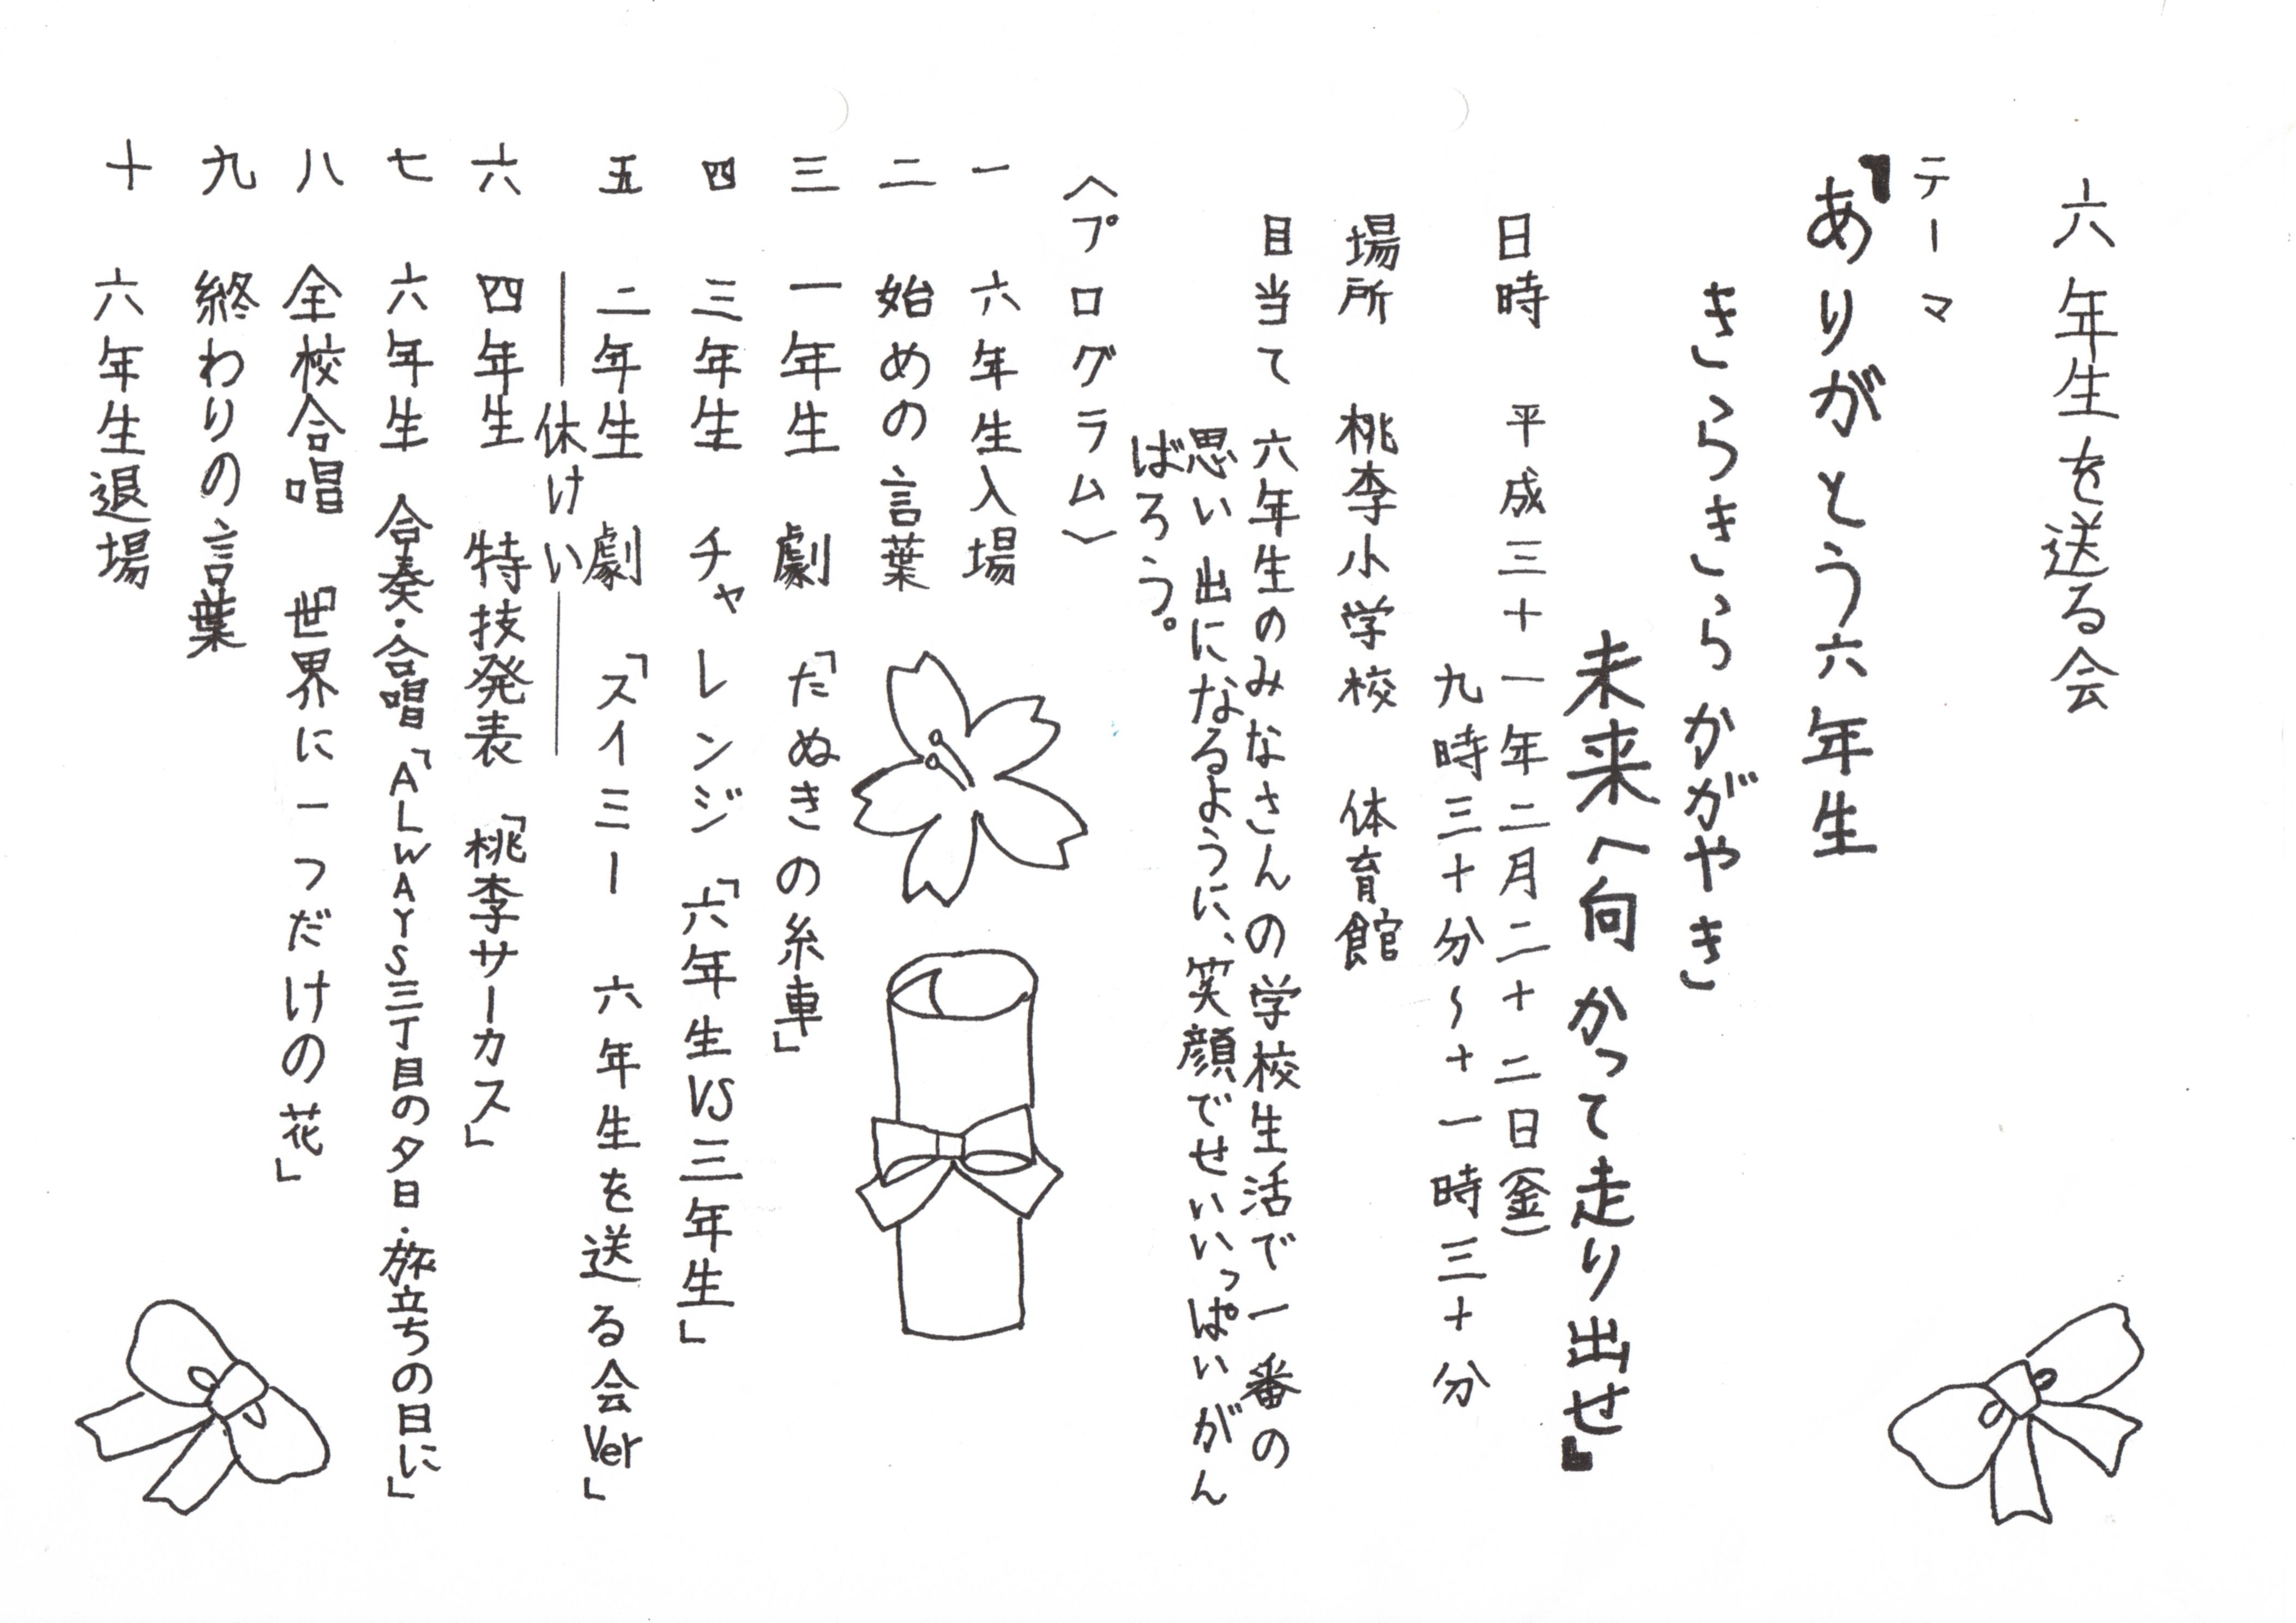 六年生を送る会
テーマ
『ありがとう六年生
きらきらかがやき
未来へ向かって走り出せ』
日時 平成三十一年二月二十二日(金)
九時三十分~十一時三十分
場所 桃李小学校 体育館
目当て 六年生のみなさんの学校生活で一番の
思い出になるように、笑顔でせいいっぱいがん
ばろう。
〈プログラム〉
一 六年生入場
二 始めの言葉
三 一年生 劇「たぬきの糸車」
四 三年生 チャレンジ「六年生VS三年生」
五 二年生 劇「スイミー 六年生を送る会Ver」
――休けい――
六 四年生 特技発表「桃李サーカス」
七 六年生 合奏・合唱「ALWAYS三丁目の夕日・旅立ちの日に」
八 全校合唱「世界に一つだけの花」
九 終わりの言葉
十 六年生退場